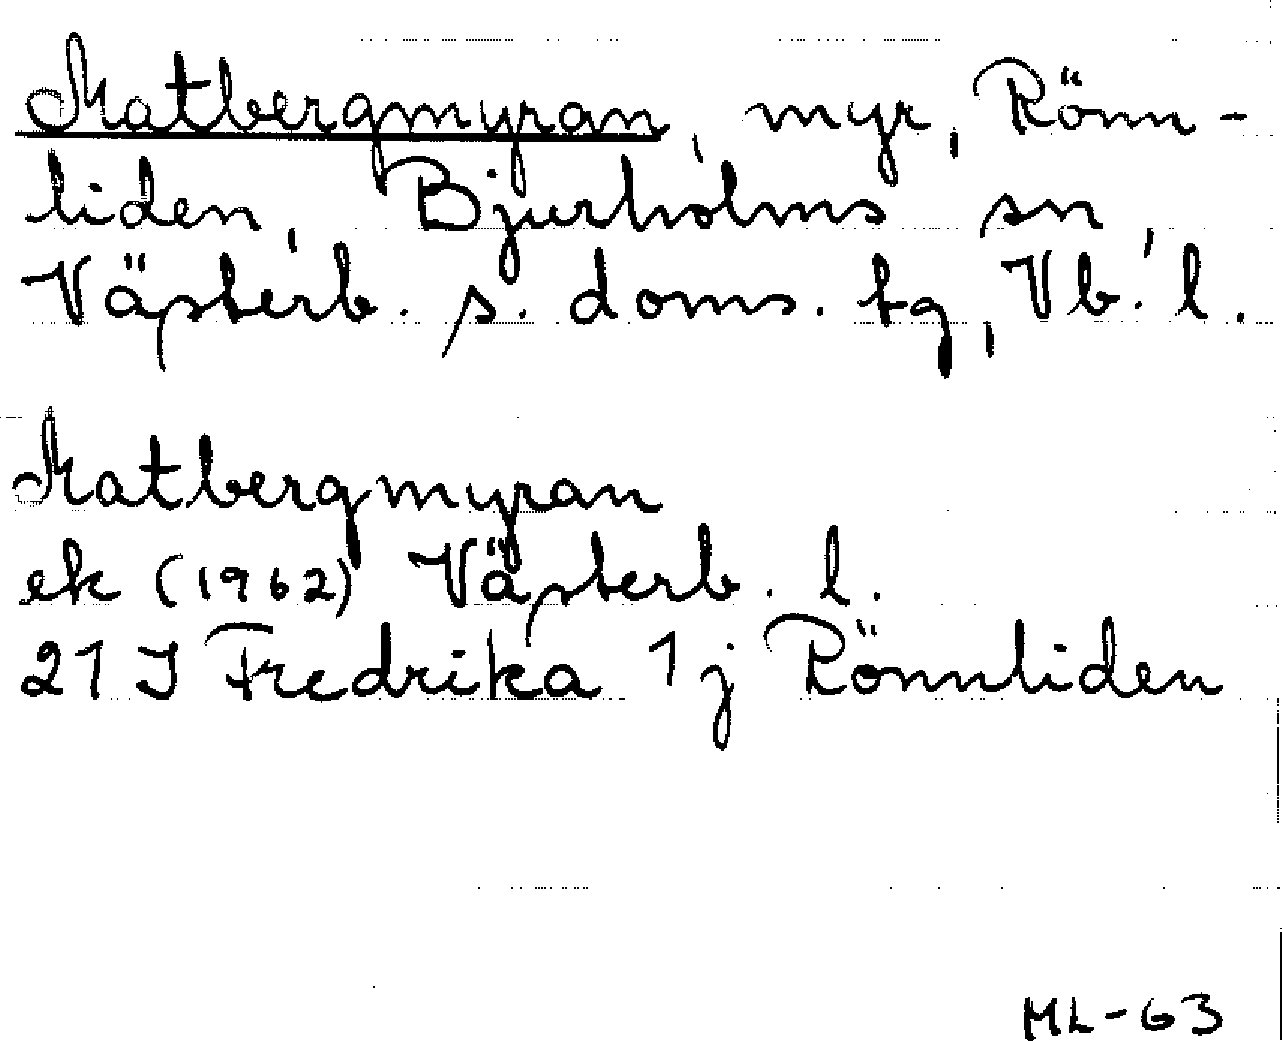 Matbergmyran, myr, Rönn-
liden, Bjurholms sn,
Västerb. s. doms. tg, Vb. l.
Matbergmyran
ek (1962) Västerb. l.
21 J Fredrika 1j Rönnliden
ML-63